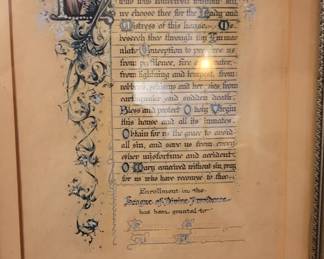 we choose thee for the Lady and
Mistress of this house. We
beseech thee through thy Immac-
ulate Conception to preserve us
from pestilence, fire & water,
from lightning and tempest, from
robbers, schisms and heresies, from
earthquake and sudden death.
Bless and protect O holy Virgin
this house and all its inmates.
Obtain for us the grace to avoid
all sin, and save us from every
other misfortune and accident.
O Mary conceived without sin pray
for us who have recourse to thee.
Enrollment in the
League of Divine Providence
has been granted to